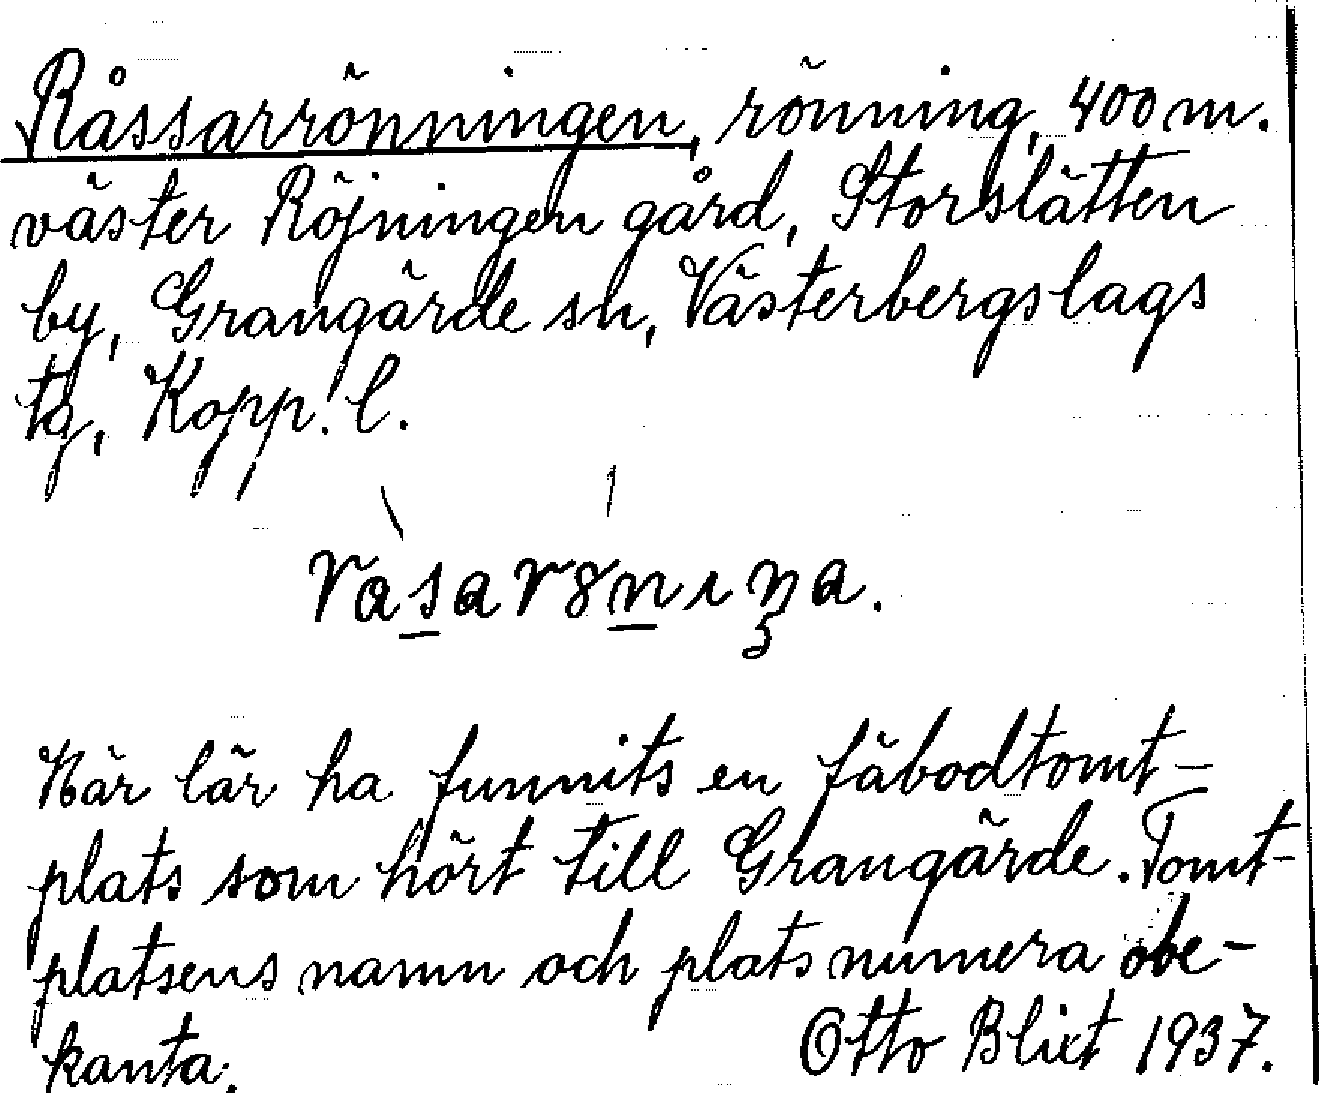 Råssarrönningen, rönning, 400 m.
väster Röjningen gård, Storslätten
by, Grangärde sn, Västerbergslags
tg, Kopp. l.
Här lär ha funnits en fäbodtomt-
plats som hört till Grangärde. Tomt-
platsens namn och plats numera obe-
kanta. Otto Blixt 1937.